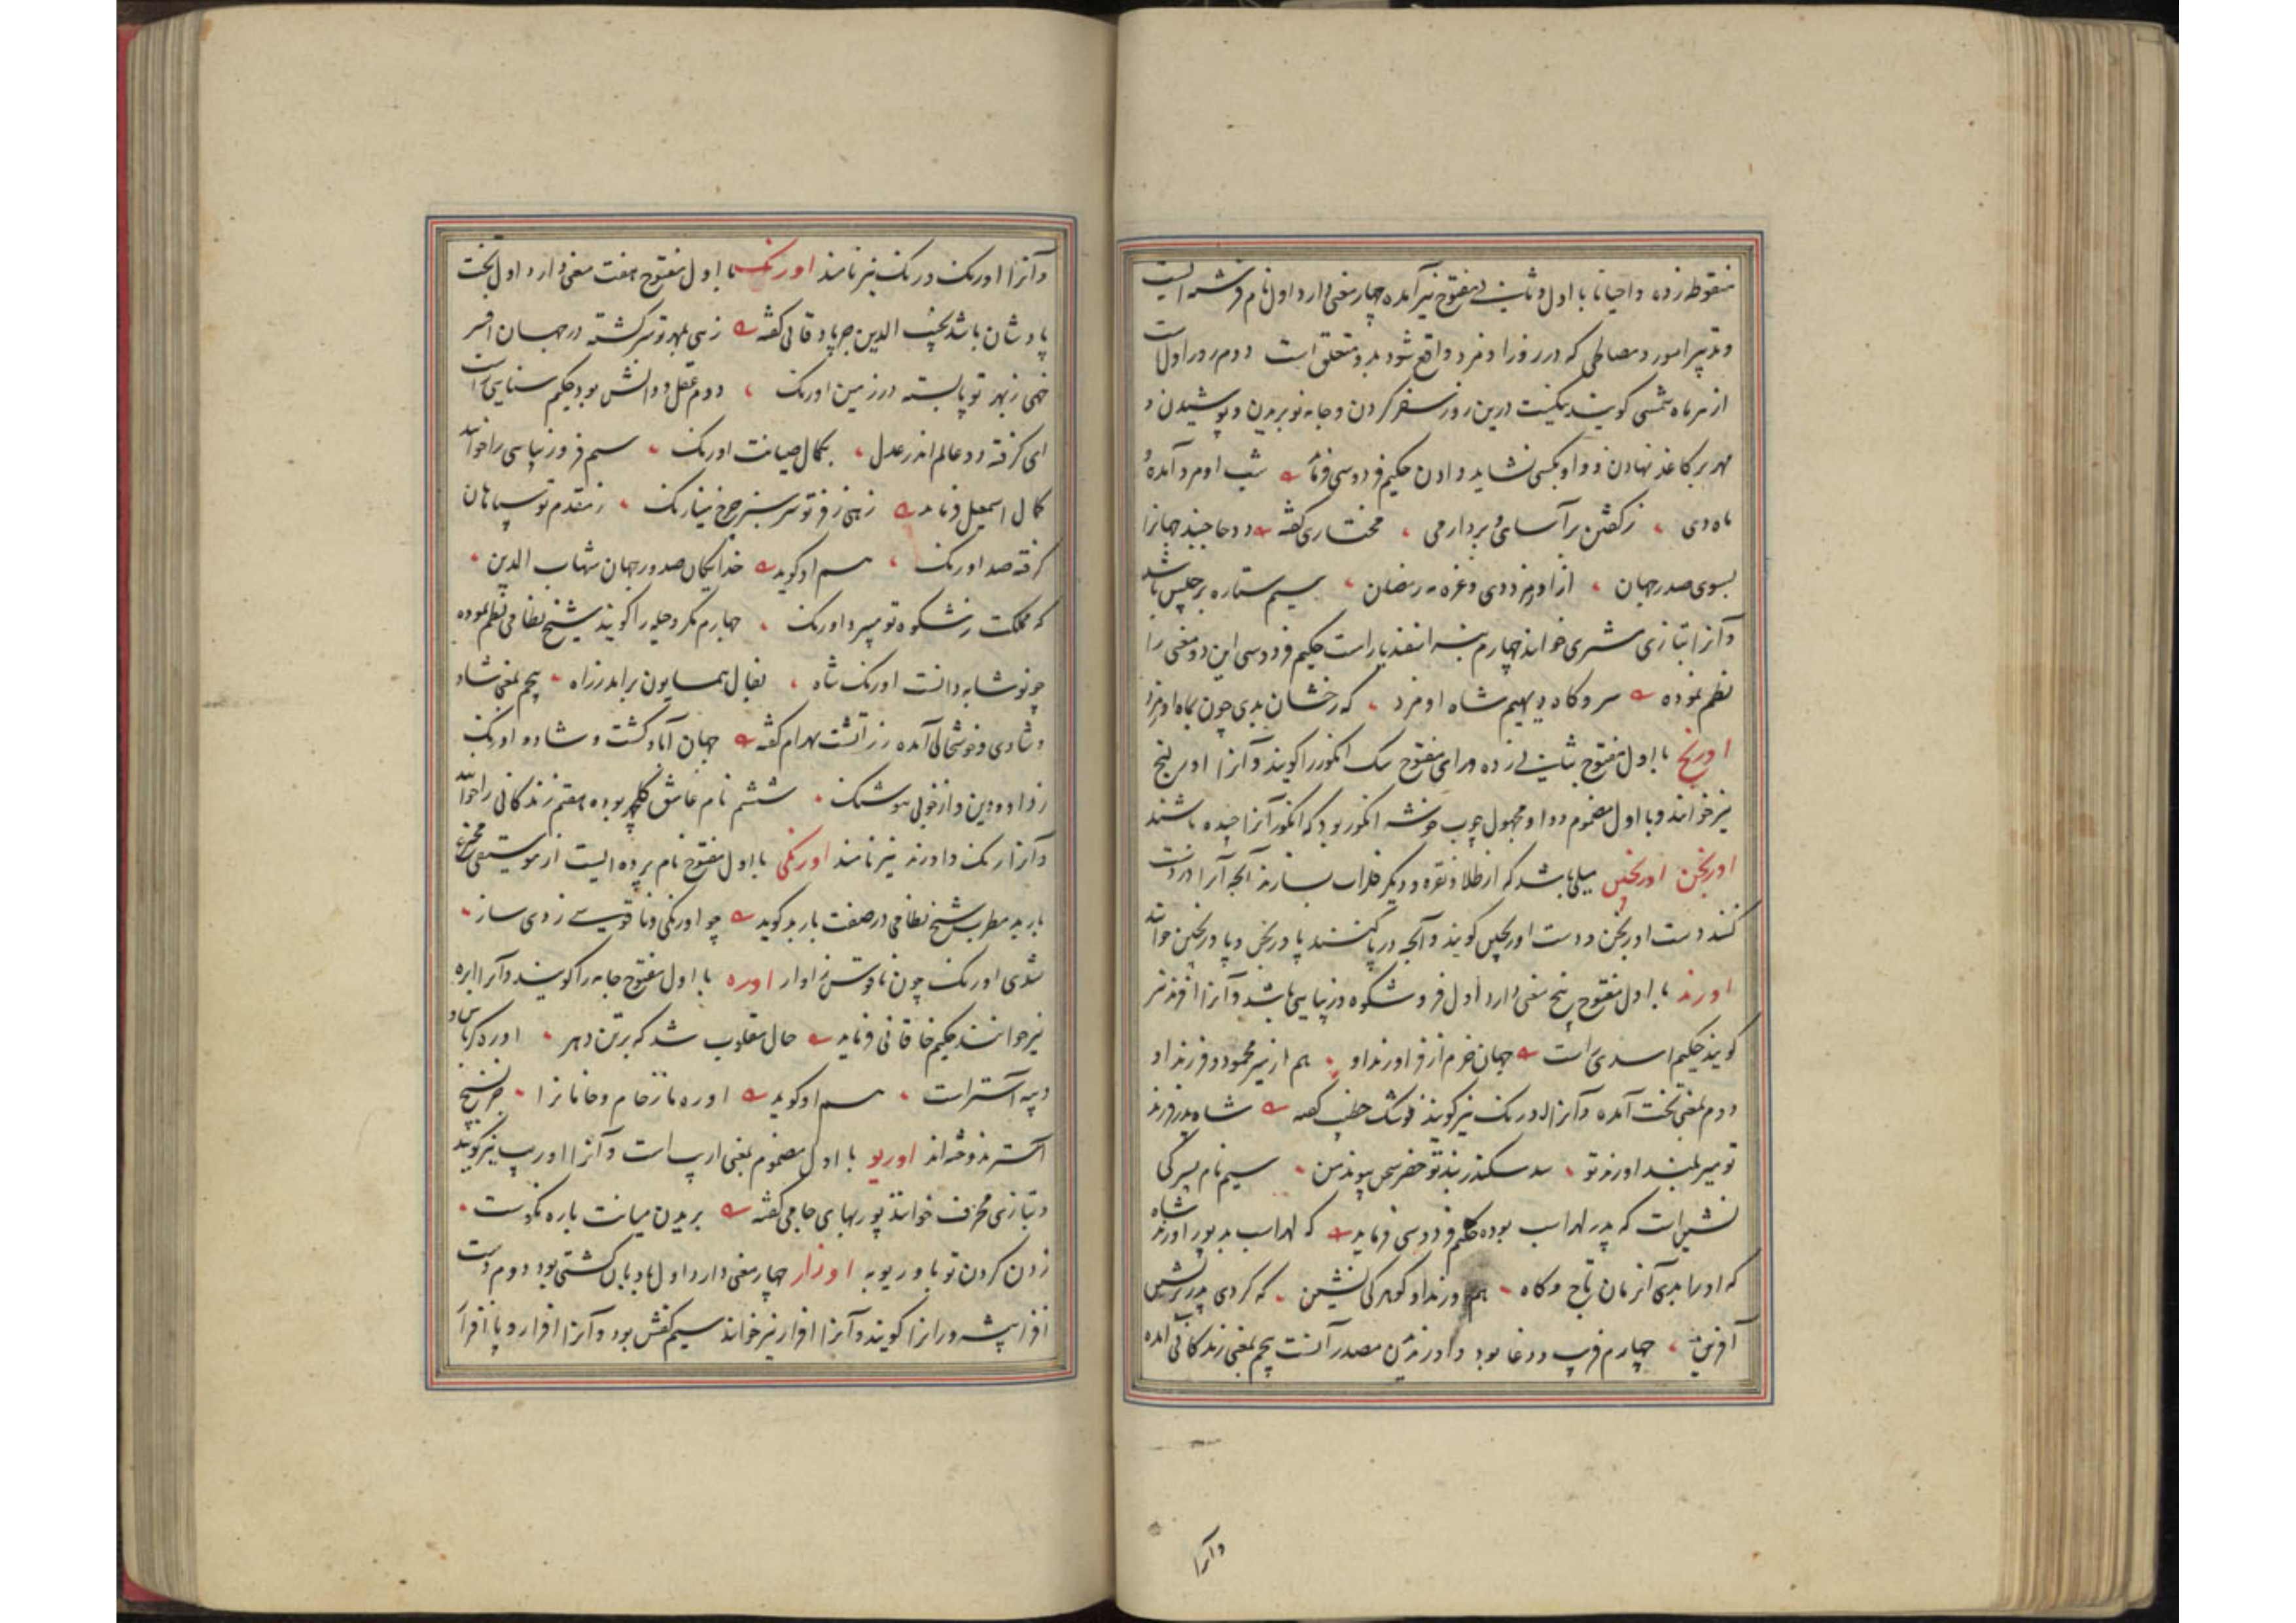 منقوطه زده و احیانا با اول و ثانی مفتوح نیز آمده چهار معنی دارد اول نام فرشته ایست
و تدبیر امور و مصالحی که در روز اومرد واقع شود بدو متعلق است دوم روز اول است
از هر ماه شمسی گویند نیکست درین روز سفر کردن و جامه نو بریدن و پوشیدن و
مهر بر کاغذ نهادن و وام بکسی نشاید دادن حکیم فردوسی فرماید شب اومرد آمد و
ماه دی زکفتن بر آسای و بردار می مختاری گفته دو جا جنید جهانرا
بسوی صدر جهان از اومزد دی و غره مه رمضان سیم ستاره برجیس باشد
و آنرا بتازی مشتری خوانند چهارم پسر اسفندیار است حکیم فردوسی این دو معنی را
نظم نموده سر و گاه دیهیم شاه اومزد که رخشان بدی چون بماه اومزد
اورنج با اول مفتوح بثانی زده و رای مفتوح سک انگور را گویند و آنرا اورنج
نیز خوانند و با اول مضموم و واو مجهول چوب خوشه انگور بود که انگور آنرا چیده باشند
اورنجن اورنجین میلی باشد که از طلا و نقره و دیگر فلزات بسازند آنچه آنرا در دست
کنند دست اورنجن و دست اورنجین گویند و آنچه در پا کنند پا اورنجن و پا اورنجین خوانند
اورند با اول مفتوح پنج معنی دارد اول فر و شکوه و زیبایی باشد و آنرا افرند نیز
گویند حکیم اسدی راست جهان خرم از فر اورند او هم از نیز محمود و فرزند او
دوم بمعنی تخت آمده و آنرا اورنگ نیز گویند خطیب گفته شاه
تو میر بلند اورند تو سد سکندر بند تو خضر پیوند من سیم نام پسر کی
نشین است که پدر لهراسب بوده حکیم فردوسی فرماید که لهراسب بد پور اورند شاه
که او را بدی آنزمان تاج و گاه هم اورند از گوهر کی نشین که کردی پدر برپشین
آفرین چهارم فریب و دغا بود و اورندیدن مصدر آنست پنجم بمعنی زندگانی آمده
وآنرا
و آنرا اورنگ و رنگ نیز نامند اورنگ با اول مفتوح هفت معنی دارد اول تخت
پادشاهان باشد نجیب الدین جرپادقانی گفته زهی بمهر تو سر گشته در جهان افسر
خهی ز بهر تو پا بسته در زمین اورنگ دوم عقل و دانش بود حکیم سنایی راست
ای گرفته دو عالم اندر عدل بکمال صیانت اورنگ سیم فر و زیبایی را خوانند
کمال اسمعیل فرماید زهی ز فر تو سر سبز چرخ مینارنگ ز مقدم تو سپاهان
گرفته صد اورنگ هم او گوید خدایگان صدور جهان شهاب الدین
که مملکت ز شکوه تو میبرد اورنگ چهارم مکر و حیله را گویند شیخ نظامی نظم نموده
چو نوشابه دانست اورنگ شاه بفال همایون برآمد ز راه پنجم بمعنی شاد
و شادی و خوشحالی آمده زرتشت بهرام گفته جهان آباد گشت و شاد و اورنگ
ز داد و دین و از خوبی هوشنگ ششم نام عاشق گلچهر بوده هفتم زندگانی را خوانند
و آنرا رنگ و اورند نیز نامند اورنگی با اول مفتوح نام پرده ایست از موسیقی مخترع
باربد مطرب شیخ نظامی در صفت باربد گوید چو اورنگی و ناقوسی زدی ساز
شدی اورنگ چون ناقوس ز آواز اوره با اول مفتوح جامه را گویند و آنرا ابره
نیز خوانند حکیم خاقانی فرماید حال مقلوب شد که بر تن دهر اوره کرباس و
دیبه آستر است هم او گوید اوره ما ز خام و خامانرا جز نسیج
آستر ندوخته اند اوریو با اول مضموم بمعنی اریب است و آنرا اوریب نیز گویند
و بتازی محرف خوانند پوربهای جامی گفته بریدن میانت باره نکوست
زدن گردن تو با وریو به اوزار چهار معنی دارد اول بادبان کشتی بود دوم دست
افزا پیشه ورانرا گویند و آنرا افزار نیز خوانند سیم کفش بود و آنرا افزار و پا افزار